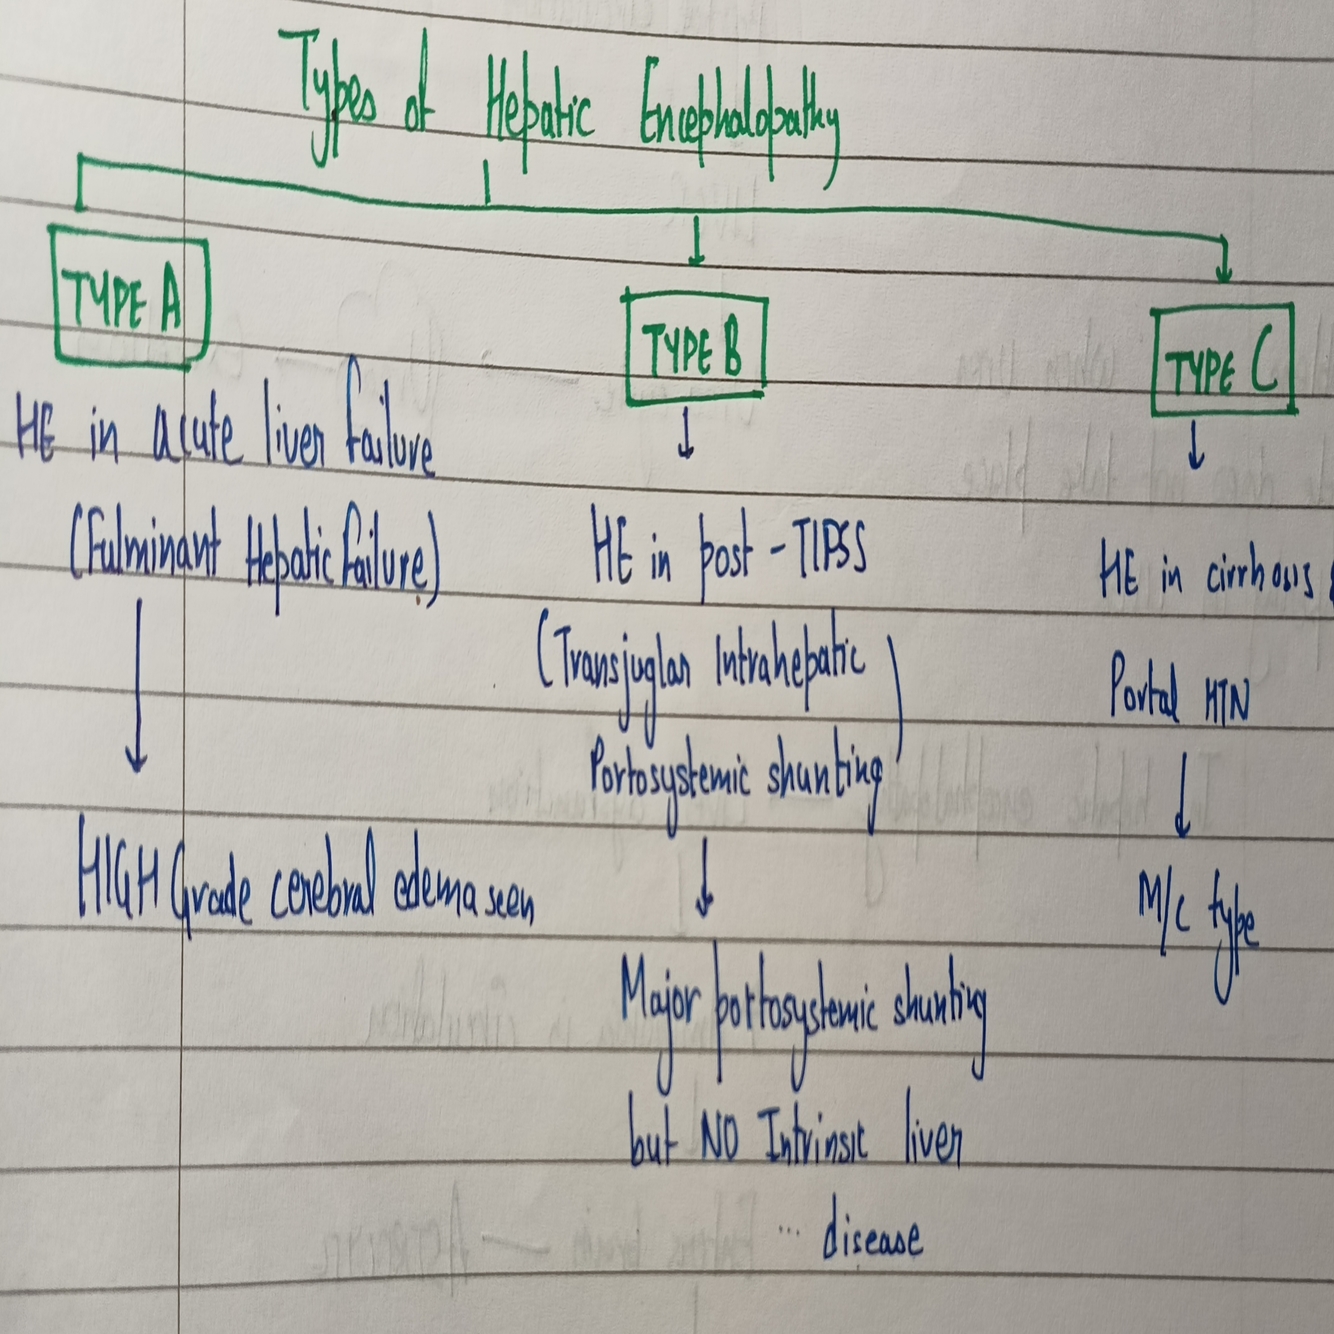 Types of Hepatic Encephalopathy
TYPE A
HE in acute liver failure
(Fulminant Hepatic failure)
HIGH Grade cerebral edema seen
TYPE B
HE in post - TIPSS
(Transjuglar Intrahepatic
Portosystemic shunting)
Major portosystemic shunting
but NO Intrinsic liver
... disease
TYPE C
HE in cirrhosis
Portal HTN
M/C type